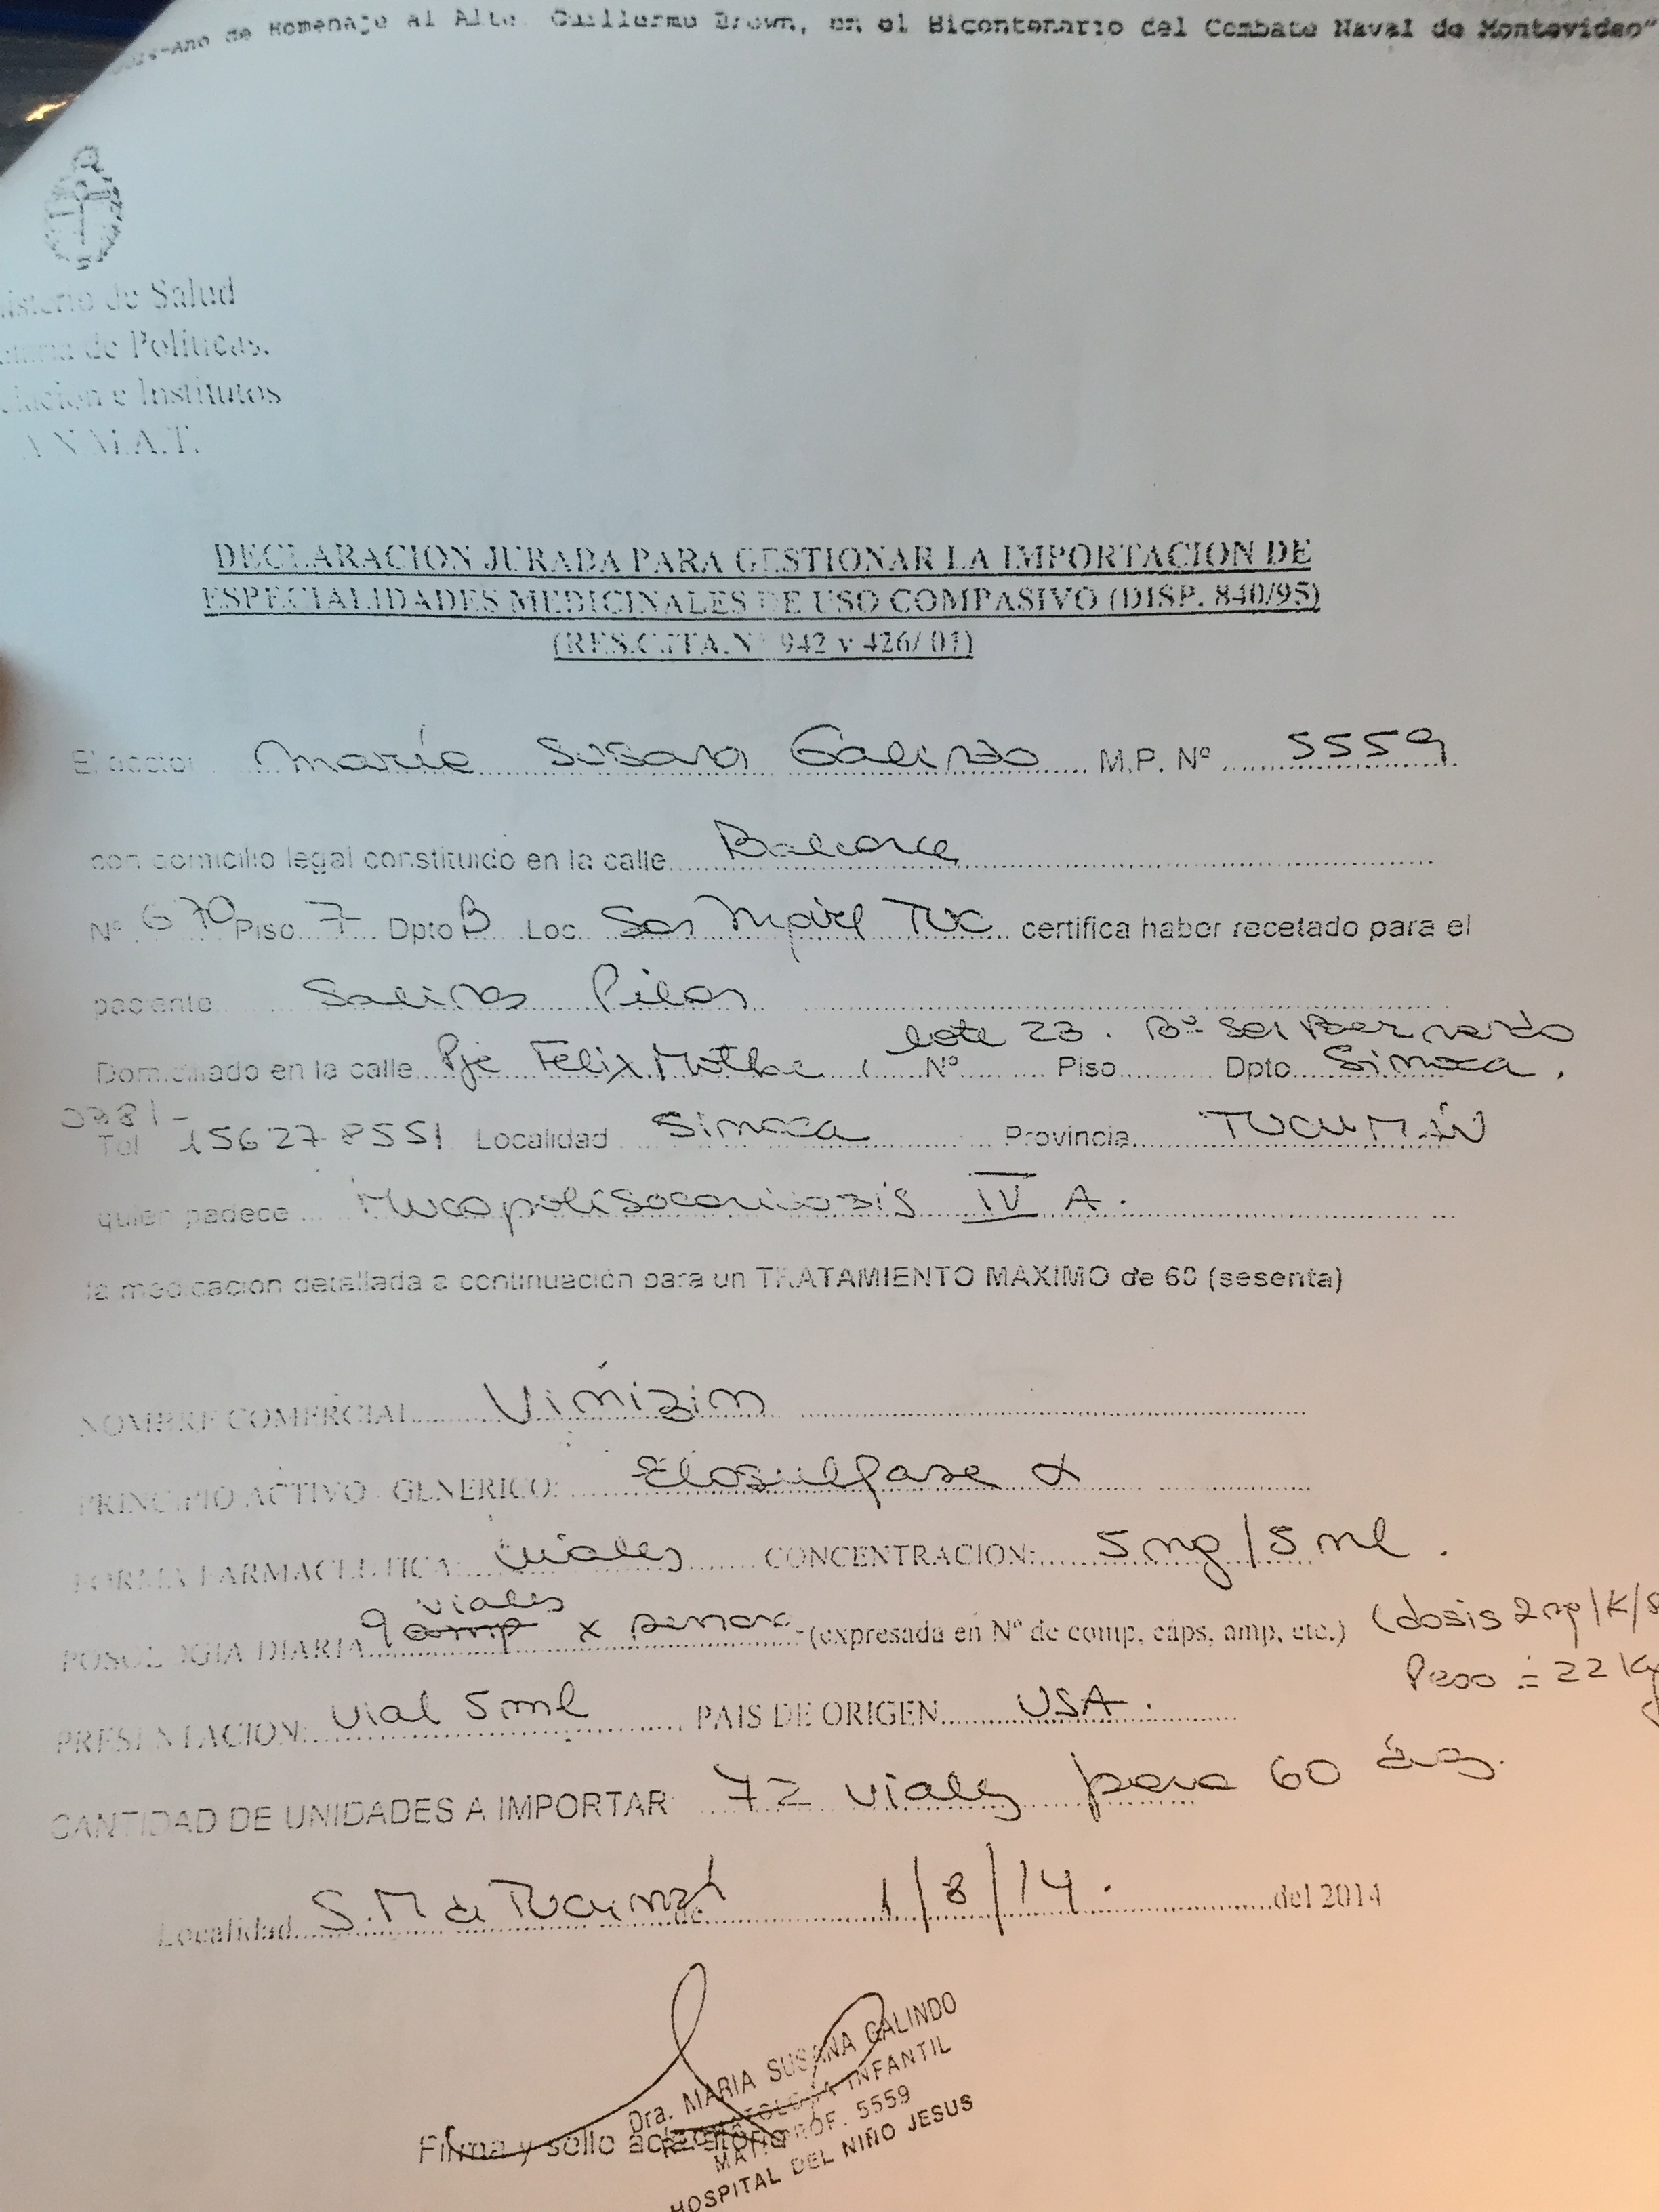 -Año de Homenaje al Alte. Guillermo Brown, en el Bicentenario del Combate Naval de Montevideo"
de Salud
de Políticas.
e Institutos
A.N.M.A.T.
DECLARACION JURADA PARA GESTIONAR LA IMPORTACION DE
ESPECIALIDADES MEDICINALES DE USO COMPASIVO (DISP. 840/95)
(RES.CJTA.Nº 942 y 426/ 01)
El doctor María Susana Galindo M.P. Nº 5559
con domicilio legal constituido en la calle Balcarce
Nº 670 Piso 7 Dpto B Loc. San Miguel Tuc certifica haber recetado para el
paciente Salinas Pilar
lote 23. Bº San Bernardo
Domiciliado en la calle Pje Felix Nº Piso Dpto Simoca.
0381-
Tel 156278551 Localidad Simoca Provincia TUCUMÁN
quien padece Mucopolisacaridosis IV A.
la medicación detallada a continuación para un TRATAMIENTO MAXIMO de 60 (sesenta)
NOMBRE COMERCIAL Vimizim
PRINCIPIO ACTIVO GENERICO: Elosulfase α
FORMA FARMACEUTICA: viales CONCENTRACION: 5 mg/5 ml.
POSOLOGIA DIARIA 9 amp viales x semana (expresada en Nº de comp, caps, amp, etc.) (dosis 2 mg/K/
Peso = 22 Kg
PRESENTACION: Vial 5 ml PAIS DE ORIGEN USA.
CANTIDAD DE UNIDADES A IMPORTAR 72 viales para 60 días.
Localidad S. M. de Tucumán de 1/8/14. del 2014
Dra. MARIA SUSANA GALINDO
INFANTIL
MAT. PROF. 5559
HOSPITAL DEL NIÑO JESUS
Firma y sello aclaratorio